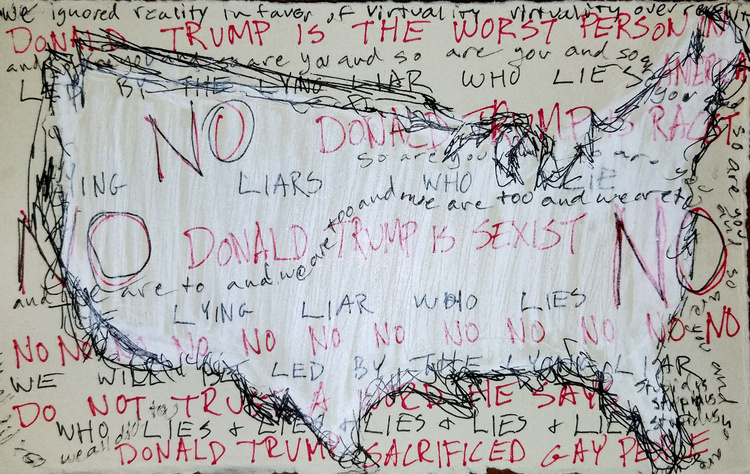 We ignored reality in favor of virtuality virtuality over
DONALD TRUMP IS THE WORST PERSON IN
and so are you and so are you and so are you and so
AMERICA
LED BY THE LYING LIAR WHO LIES
you
NO DONALD TRUMP IS RACIST
so are you are
LIARS WHO LIE
and we are too and we are too and we are to
NO DONALD TRUMP IS SEXIST NO
and we are to and we are too
LYING LIAR WHO LIES
NO NO NO NO NO NO NO NO NO NO NO
WE WILL BE LED BY THE LYING LIAR
DO NOT TRUST A WORD HE SAYS
WHO LIES & LIES & LIES & LIES & LIES
we all did
DONALD TRUMP SACRIFICED GAY PEOPLE
so are you and so are you and